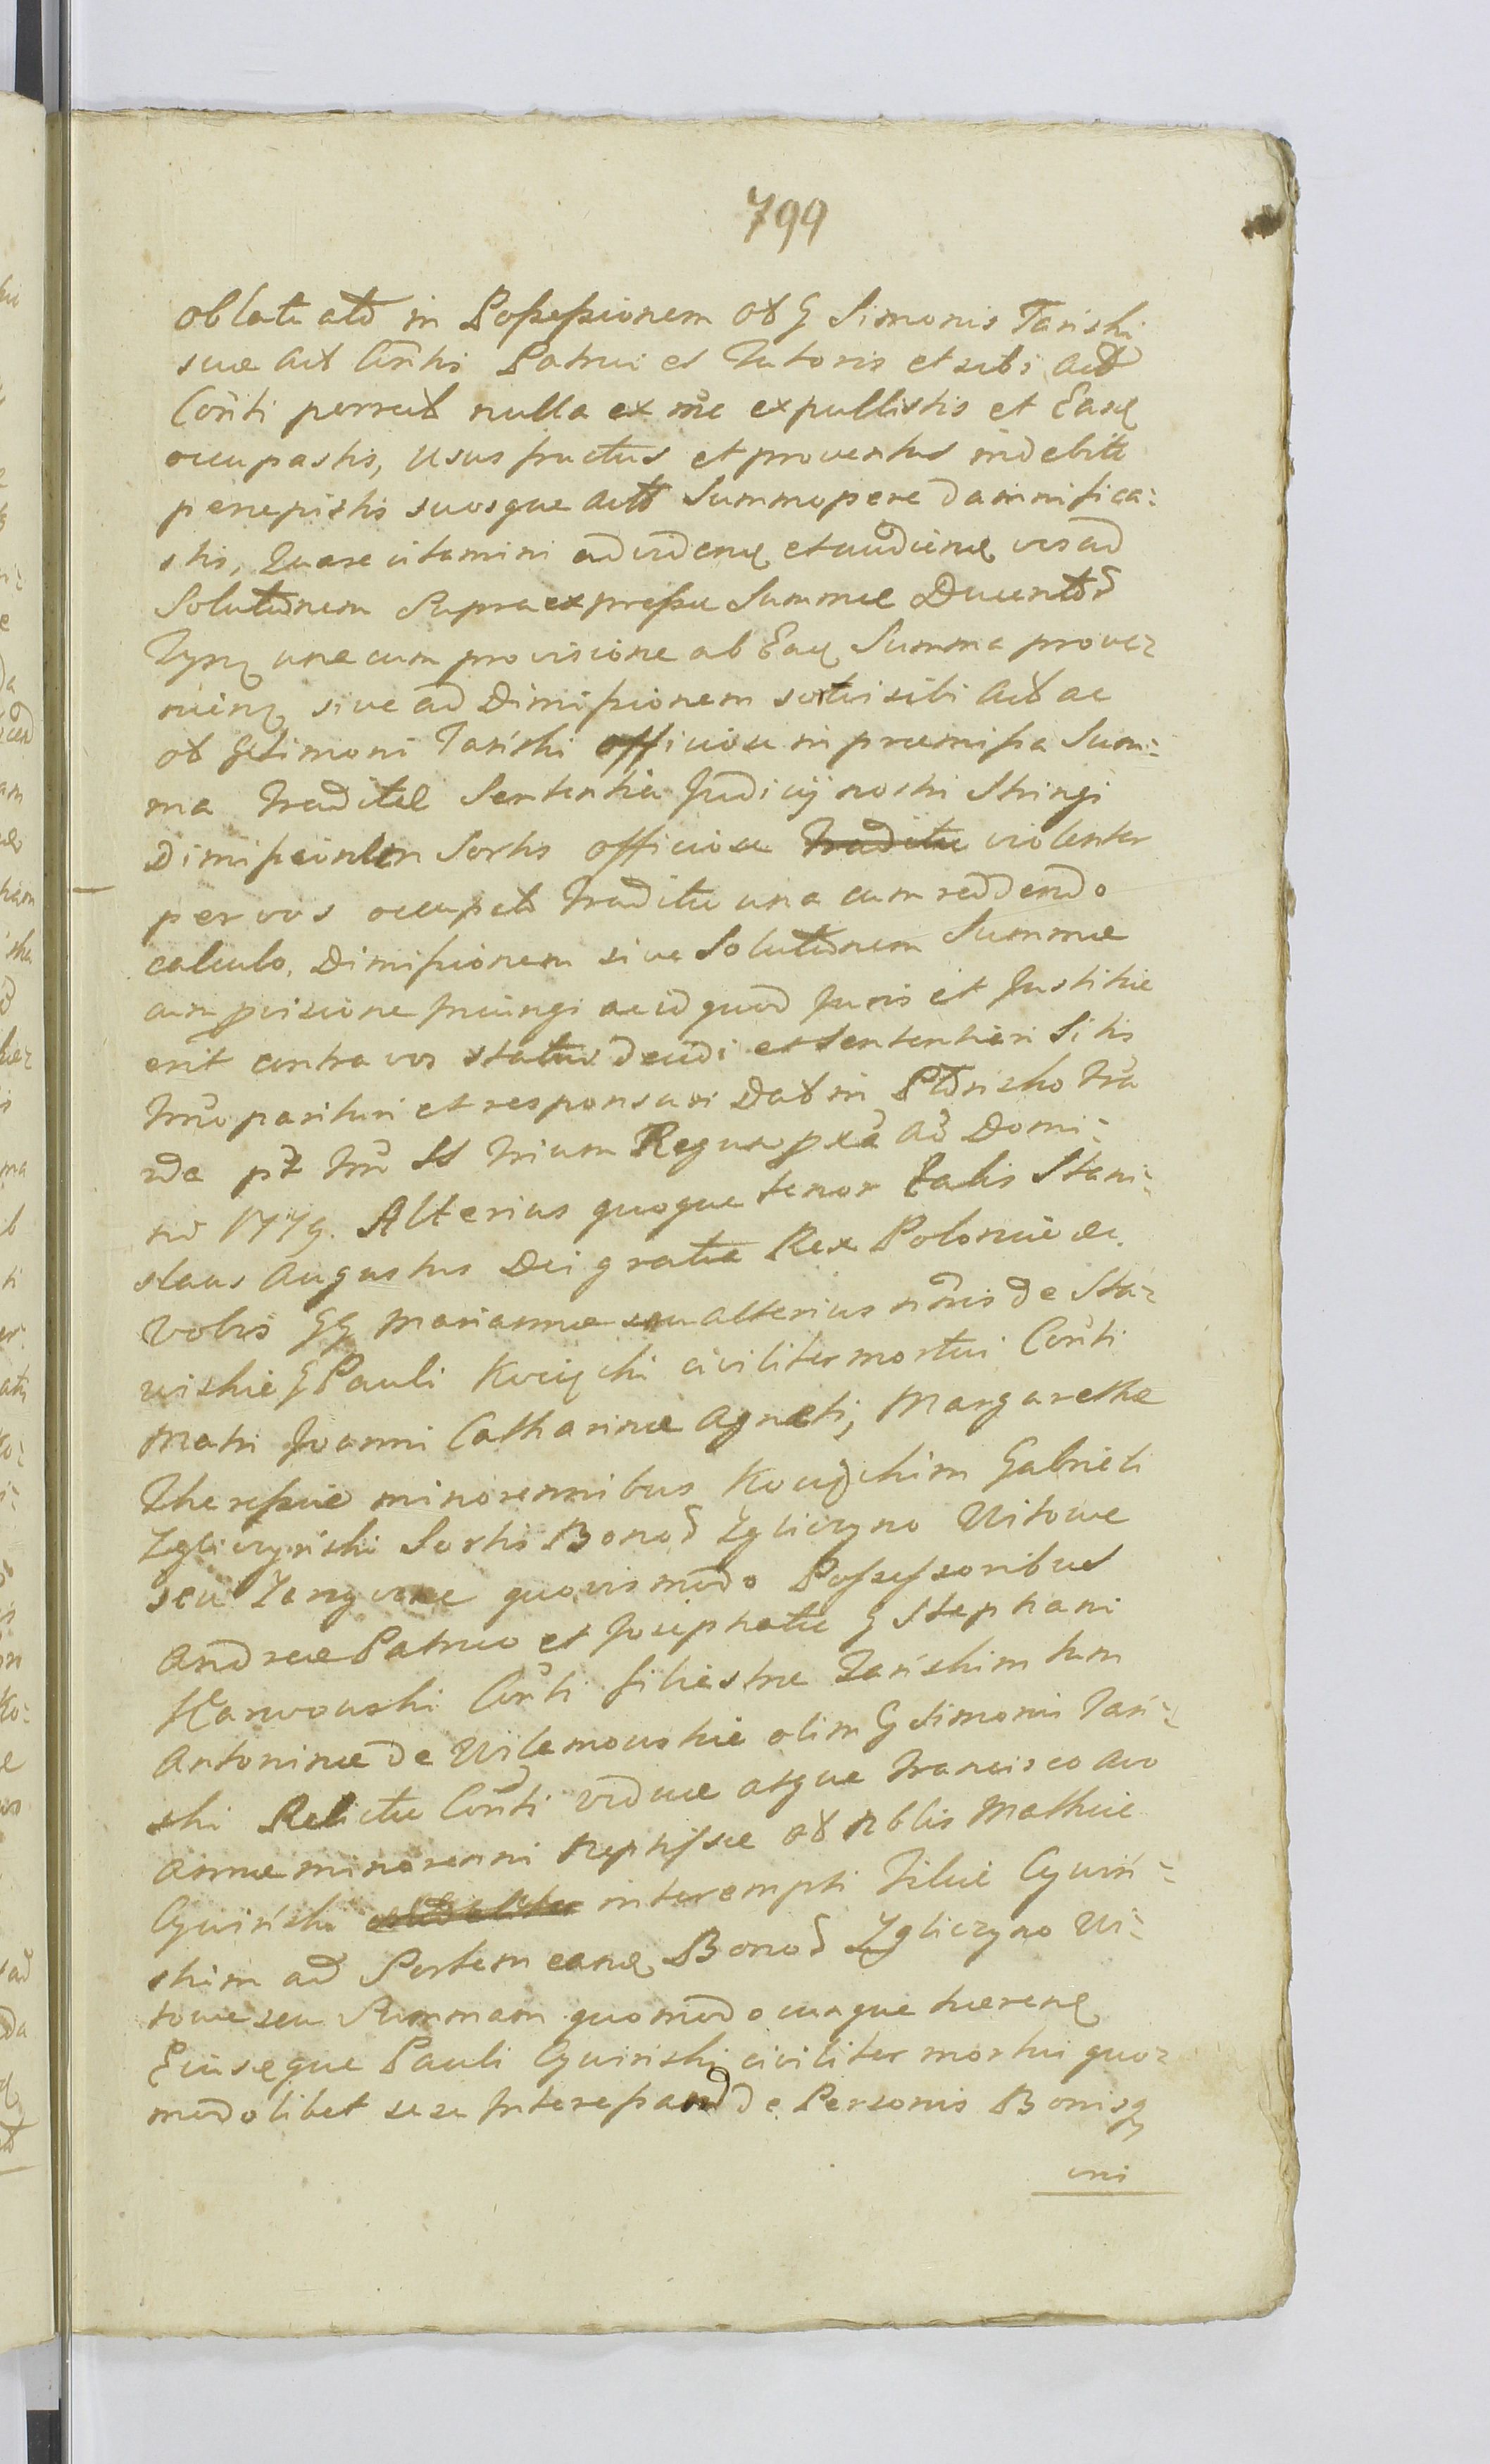 799
oblatu atd in Possessionem ob G Simonis Tanski
suæ act Cōnti Patrui et Tutoris et sibi act
Conti perract nulla ex me expullistis et Eanq
occupastis, Usus fructus et proventus indebite
percepistis suosque act Summopere damnifica:
stis, Quare citamini ad videnq et audienq vos ad
Solutionem Supra expressæ Summæ Ducentor
Tynf una cum provisione ab Eaq Summa prove-
nienq sive ad Dimissionem sortis sibi act ac
ob G Simoni Tanski officiose in præmissa Sum:
ma traditæ Sententia Judicij nostri Stringi
Dimissionem Sortis officiose traditæ violenter
per vos occupatæ traditæ una cum reddendo
calculo. Dimissionem sive Solutionem Summæ
cum pvisione injungi ac id quod Juris et Justitiæ
erit contra vos statui decidi et sententiari Sitis
trno parituri et responsuri Dat in Ptrisko fria
2da pt frū SS trium Regum pxa Ao Domi:
ni 1779. Alterius quoque tenor talis Stani:
slaus Augustus Dei gratia Rex Poloniæ &c.
Vobis GG Mariannæ seu alterius nōnis de Sta-
wiskie G Pauli Kociçki civiliter mortui Conti
Matri Joanni Catharinæ Agneti, Margarethæ
Theressiæ minorennibus Kociçkim Gabrieli
Zgliczyński Sortis Bonor Zgliczyno Witowe
seu quovis modo Possessoribus
Andreæ Patruo et Josephatæ G Stephani
Karwowski Cōnti filiastræ Tańskim tum
Antoninæ de Wilamowskie olim G Simonis Tań:
ski Relictæ Conti viduæ atque Francisco avo
Annæ minorenni Neptissæ ob Nblis Mathiæ
Cywiński interempti Filiæ Cywiń:
skim ad Sortem eanq Bonor Zgliczyno Wi:
towe seu Summam quomodocunque hærenq
Ejusqque Pauli Cywiński civiliter mortui quo-
modolibet sese Interessand de Personis Bonisq
vni